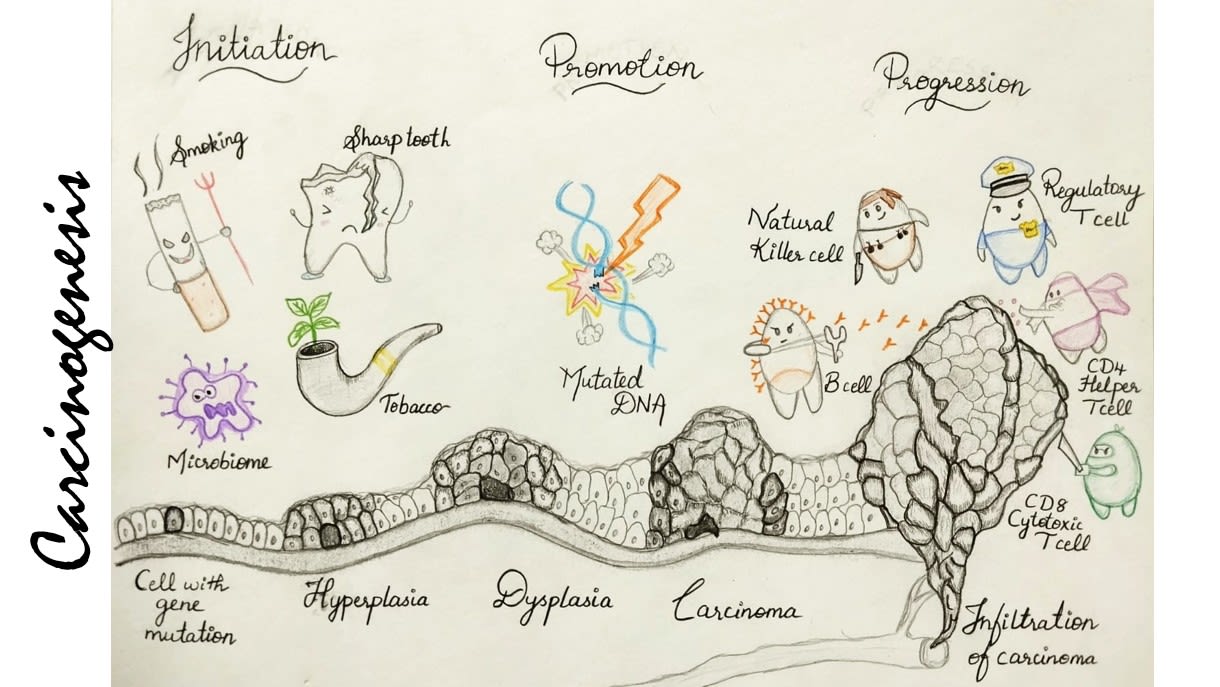 Carcinogenesis
Initiation
Promotion
Progression
Smoking
Sharp tooth
Microbiome
Tobacco
Mutated
DNA
Natural
Killer cell
Regulatory
T cell
B cell
CD4
Helper
T cell
CD8
Cytotoxic
T cell
Cell with
gene
mutation
Hyperplasia
Dysplasia
Carcinoma
Infiltration
of carcinoma